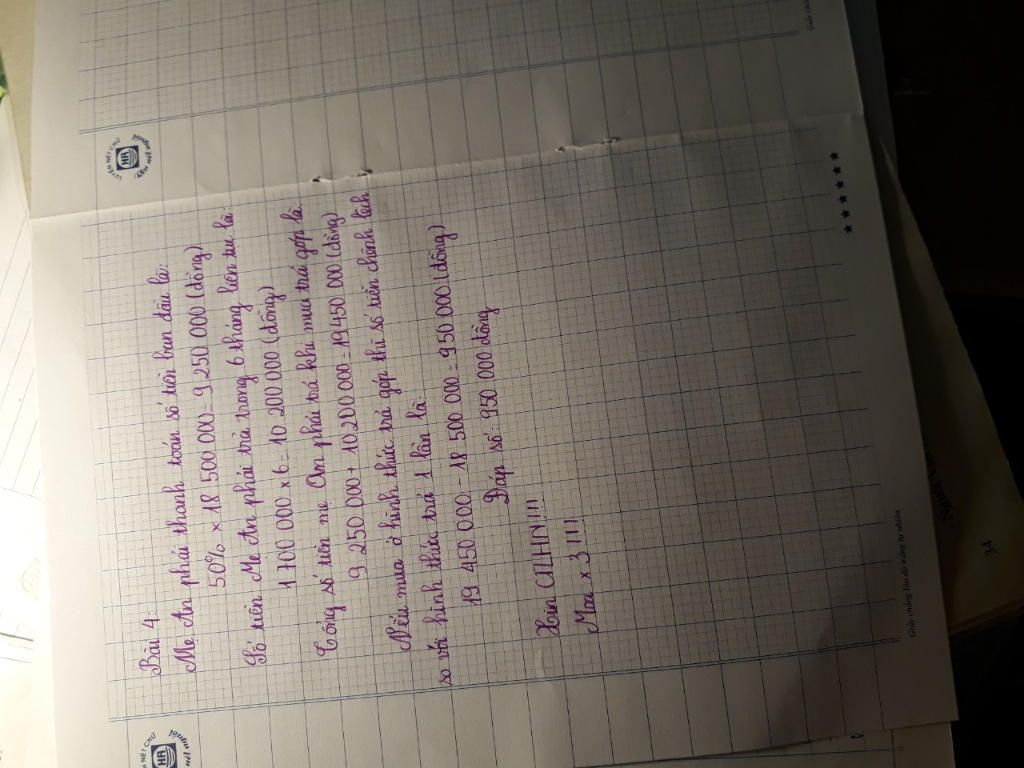 Bài 4:
Mẹ An phải thanh toán số tiền ban đầu là:
50% × 18 500 000 = 9 250 000 (đồng)
Số tiền Mẹ An phải trả trong 6 tháng liên tục là:
1 700 000 × 6 = 10 200 000 (đồng)
Tổng số tiền mẹ An phải trả khi mua trả góp là:
9 250 000 + 10 200 000 = 19 450 000 (đồng)
Nếu mua ở hình thức trả góp thì số tiền chênh lệch
so với hình thức trả 1 lần là
19 450 000 - 18 500 000 = 950 000 (đồng)
Đáp số: 950 000 đồng
Xin CTLHN!!!
Moa × 3 !!!
★★★★★★★
Giấy chống lóa từ trắng tự nhiên
LUYỆN NÉT CHỮ
HA
34